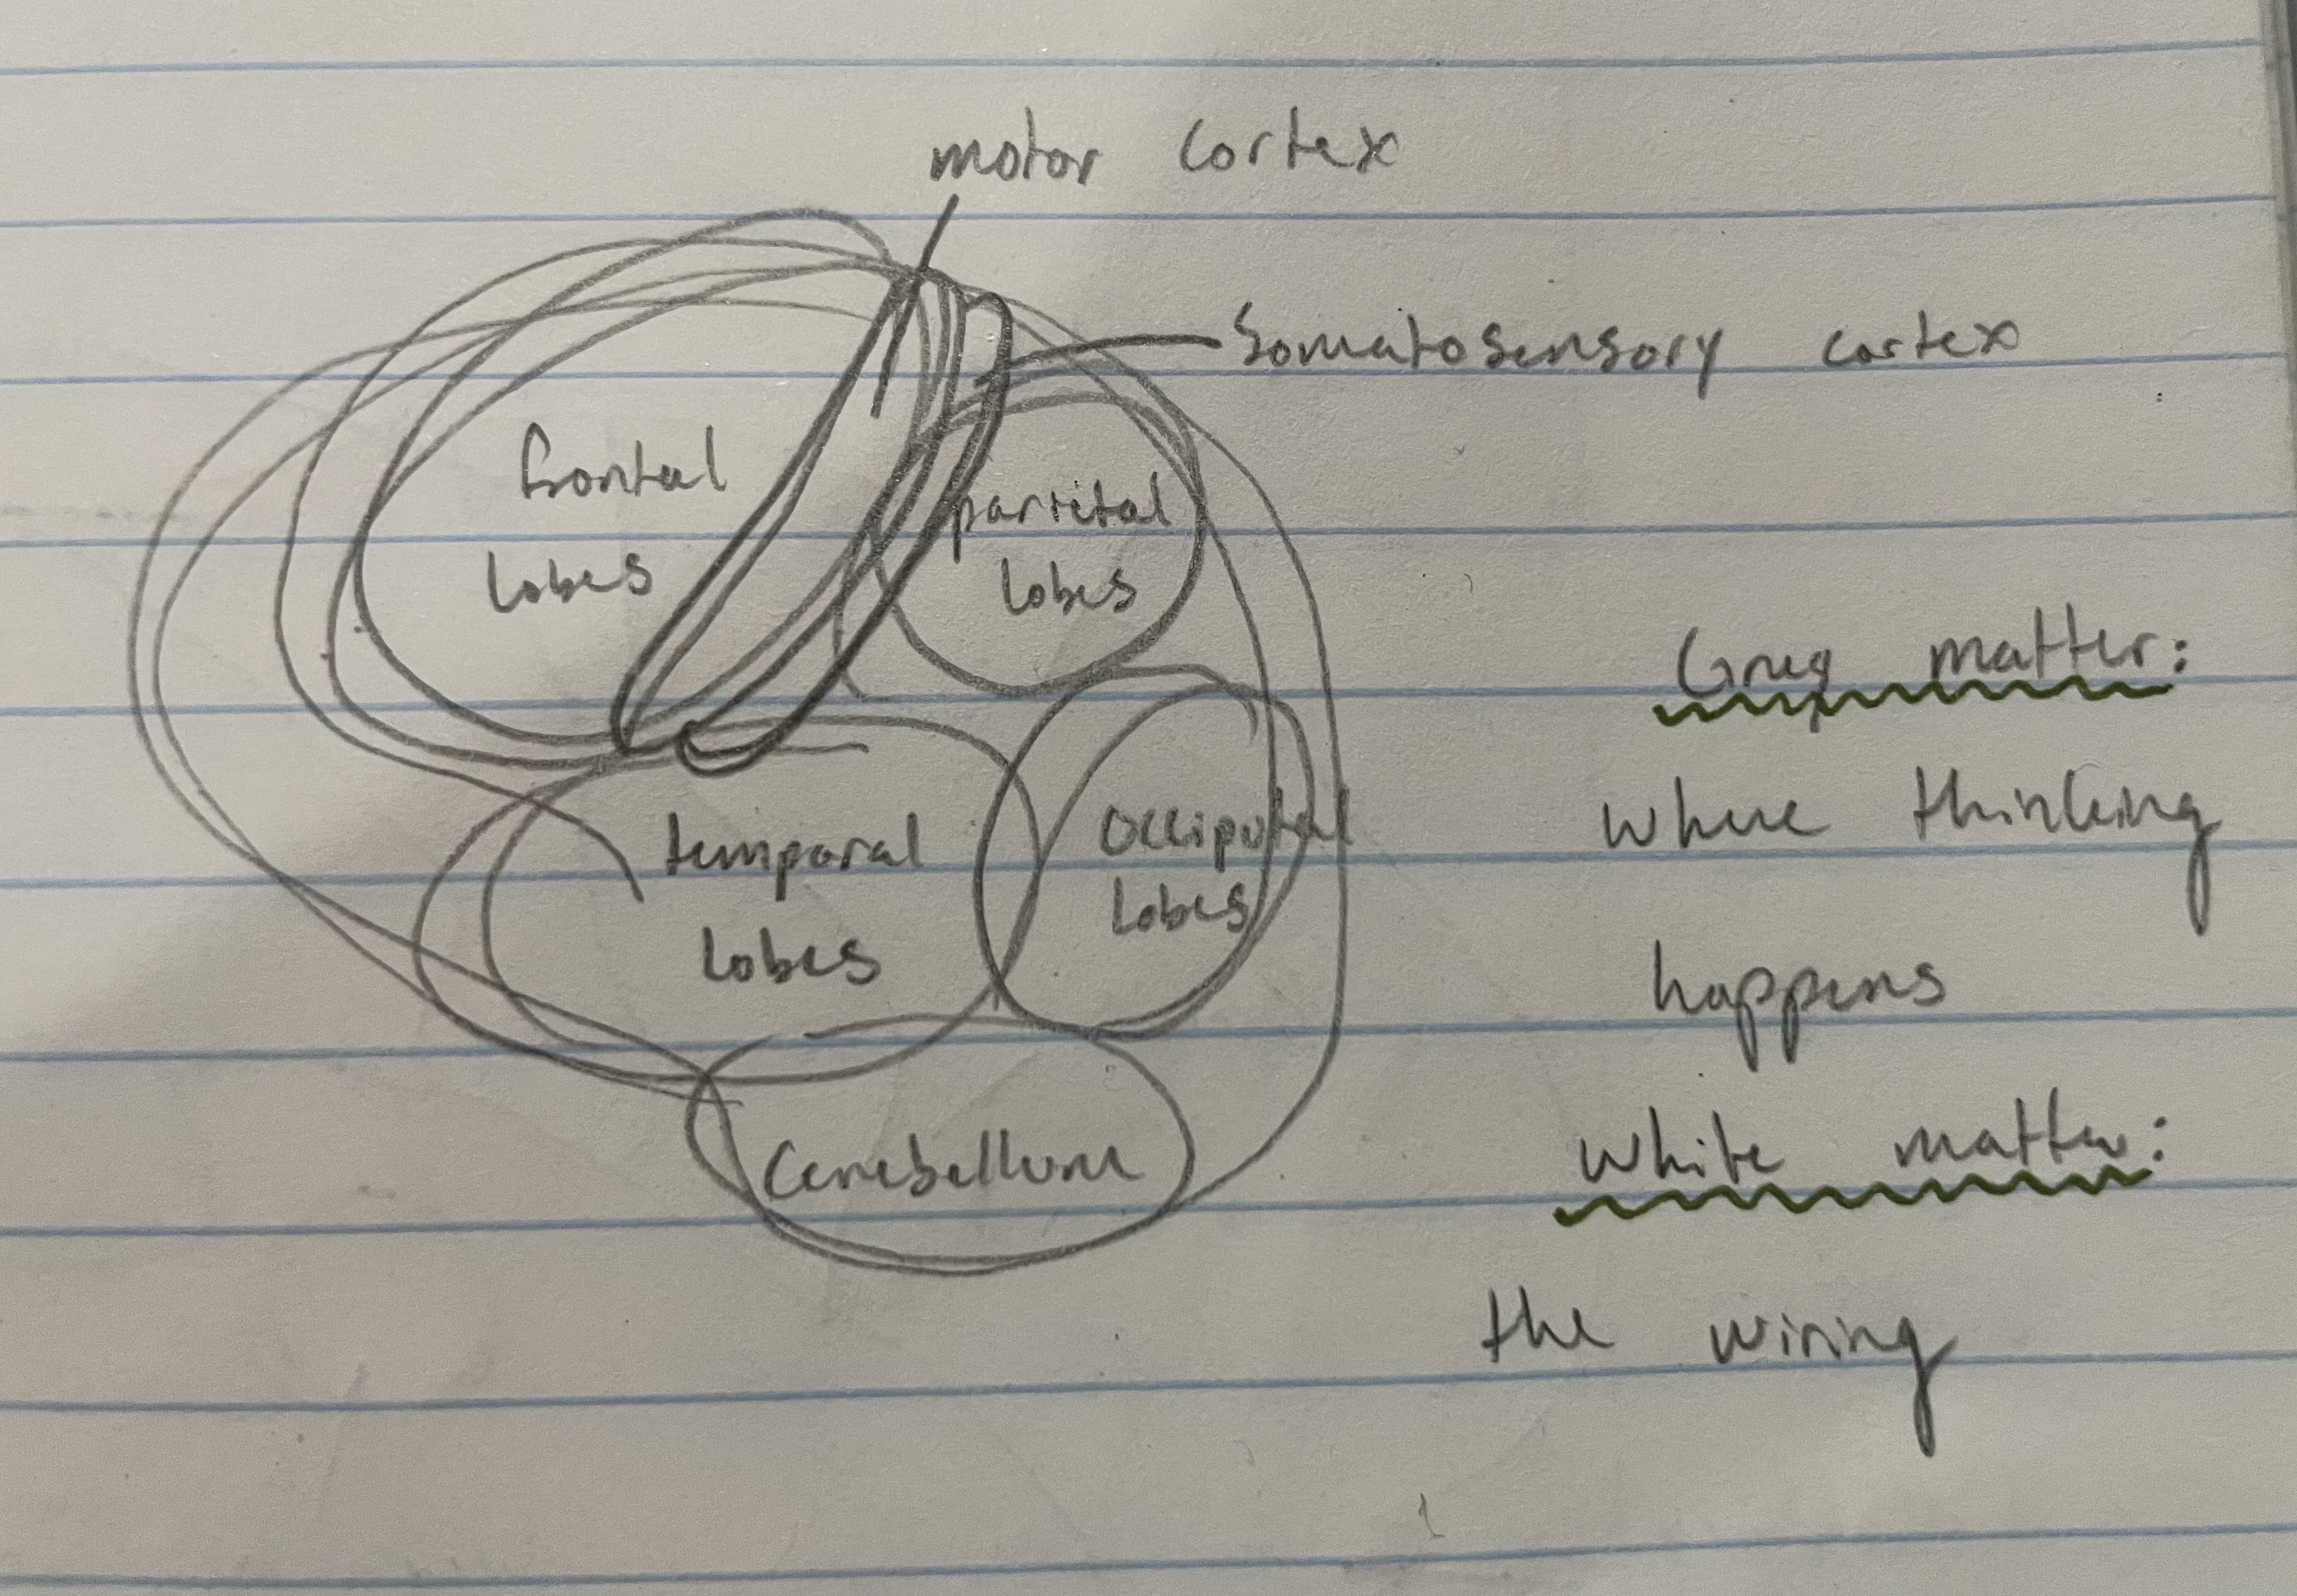 motor cortex
Somatosensory cortex
frontal
lobes
parietal
lobes
Grey matter:
where thinking
temporal
lobes
Occipital
lobes
happens
White matter:
Cerebellum
the wiring